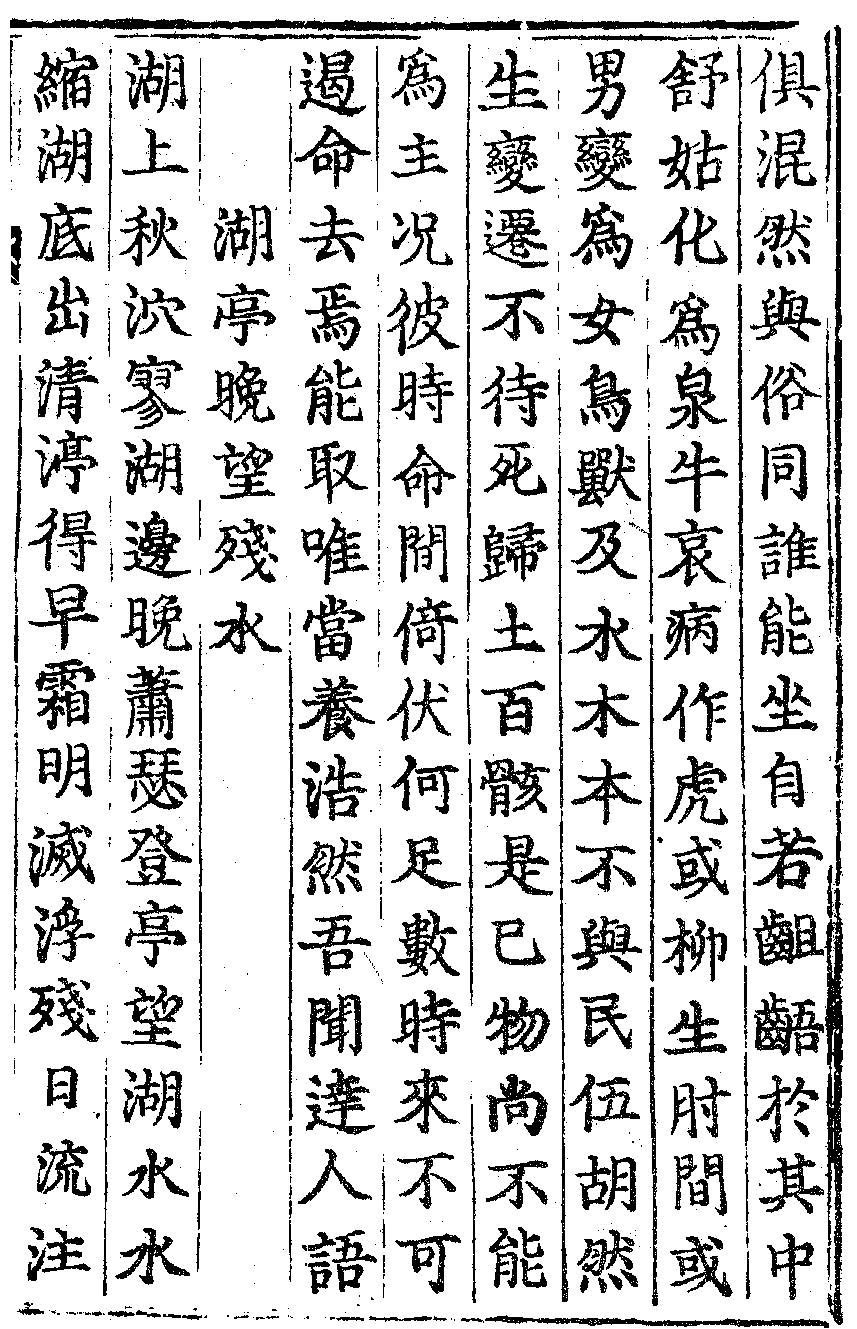 俱混然與俗同誰能坐自若齟齬於其中
舒姑化爲泉牛哀病作虎或柳生肘間或
男變爲女鳥獸及水木本不與民伍胡然
生變遷不待死歸土百骸是己物尚不能
爲主况彼時命間倚伏何足數時來不可
遏命去焉能取唯當養浩然吾聞達人語
湖亭晚望殘水
湖上秋泬寥湖邊晚蕭瑟登亭望湖水水
縮湖底出清渟得早霜明滅浮殘日流注